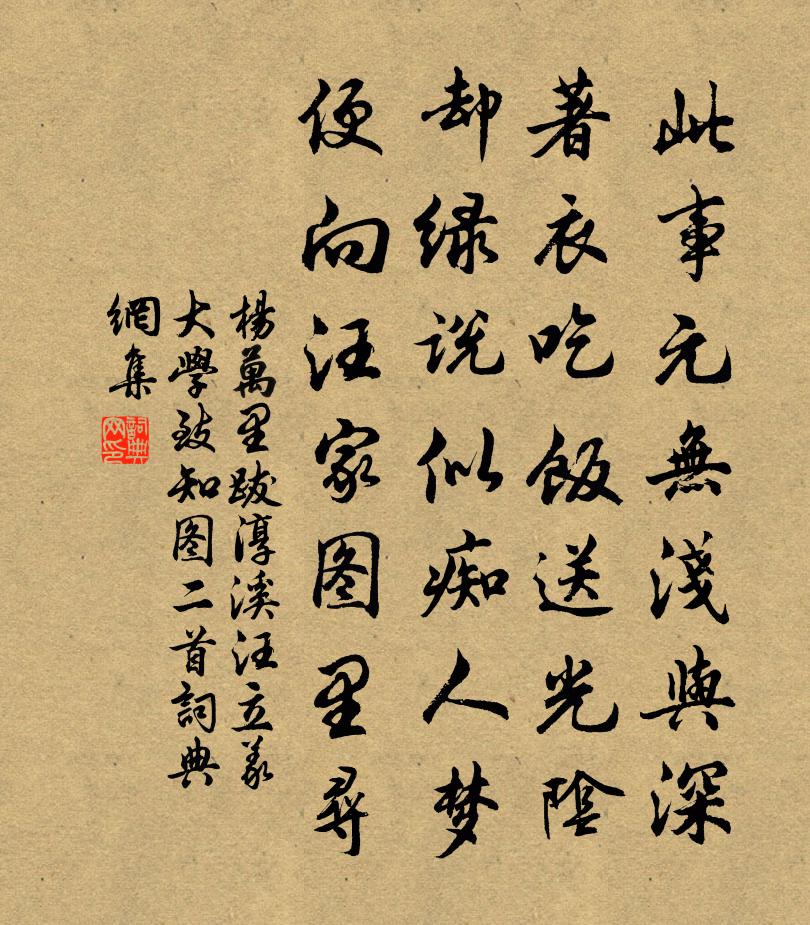 此事元無淺與深
著衣吃飯送光陰
却缘说似痴人梦
便向汪家图里尋
楊萬里跋淳溪汪立義
大學致知图二首詞典
網集
詞典
网印